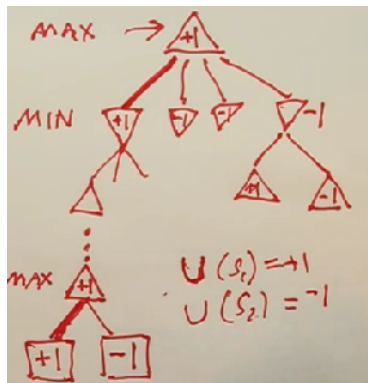 MAX → +1
MIN +1 -1 -1 -1
+1 -1
MAX +1
U(S₁)=+1
U(S₂)=-1
+1 -1